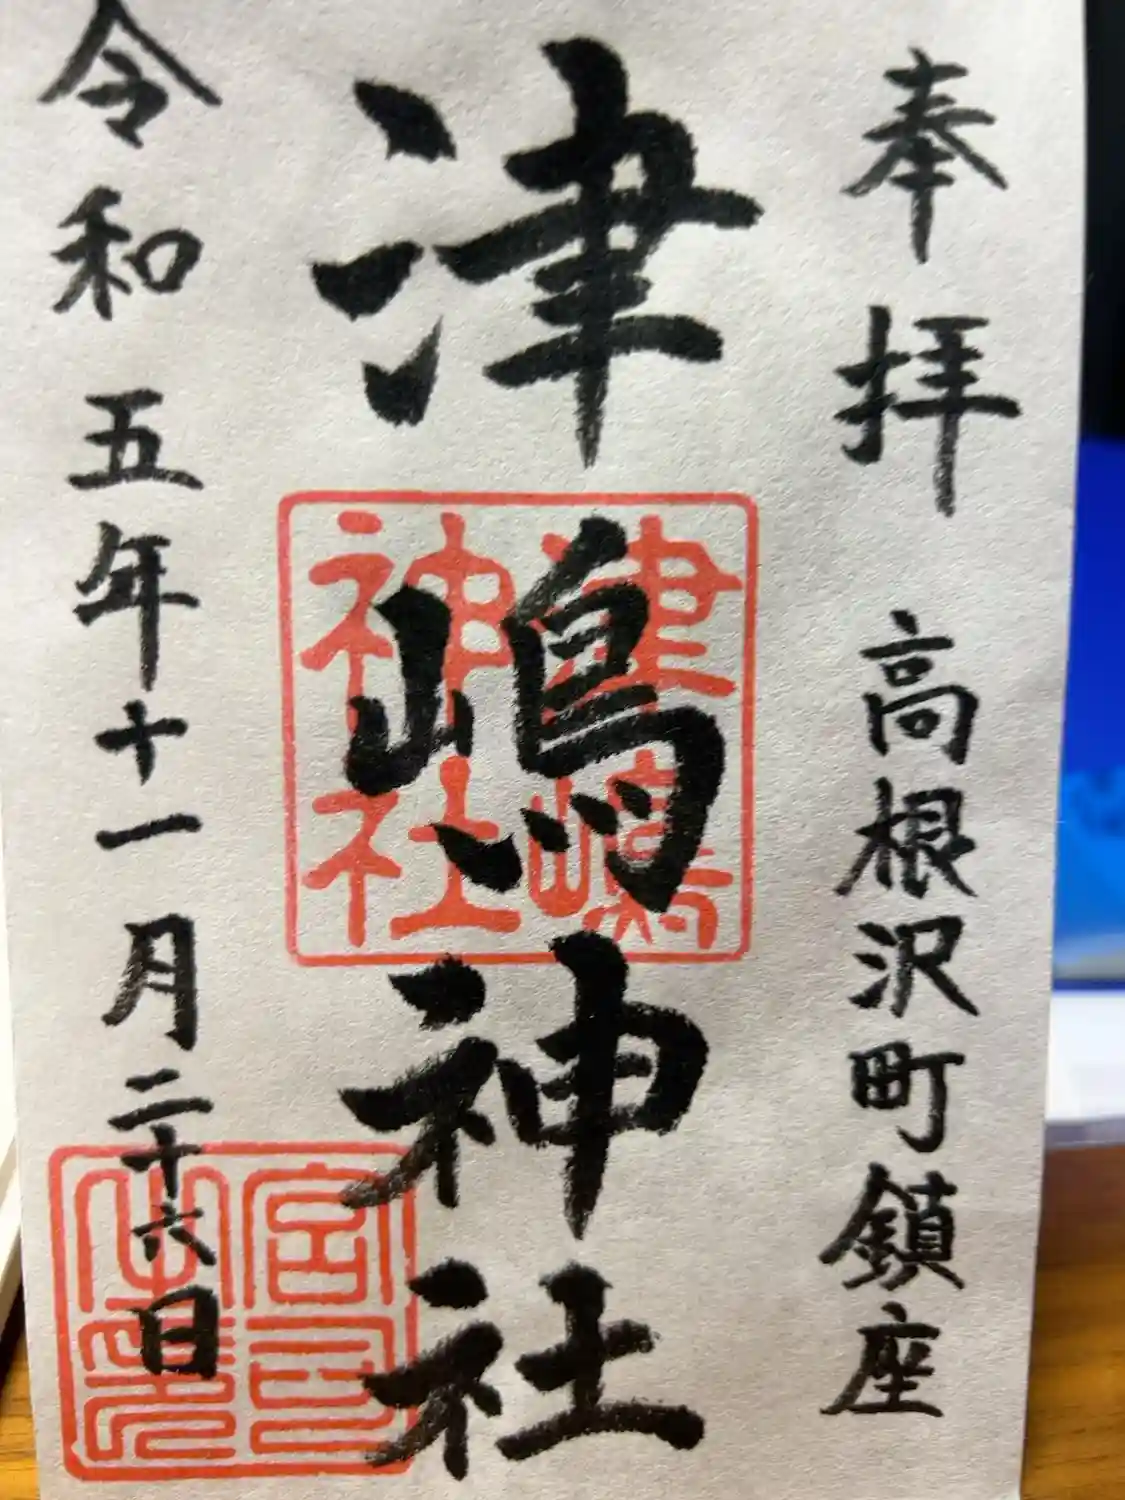 奉拝 高根沢町鎮座
津嶋神社
令和五年十一月二十六日
津嶋
神社
宮司
之印